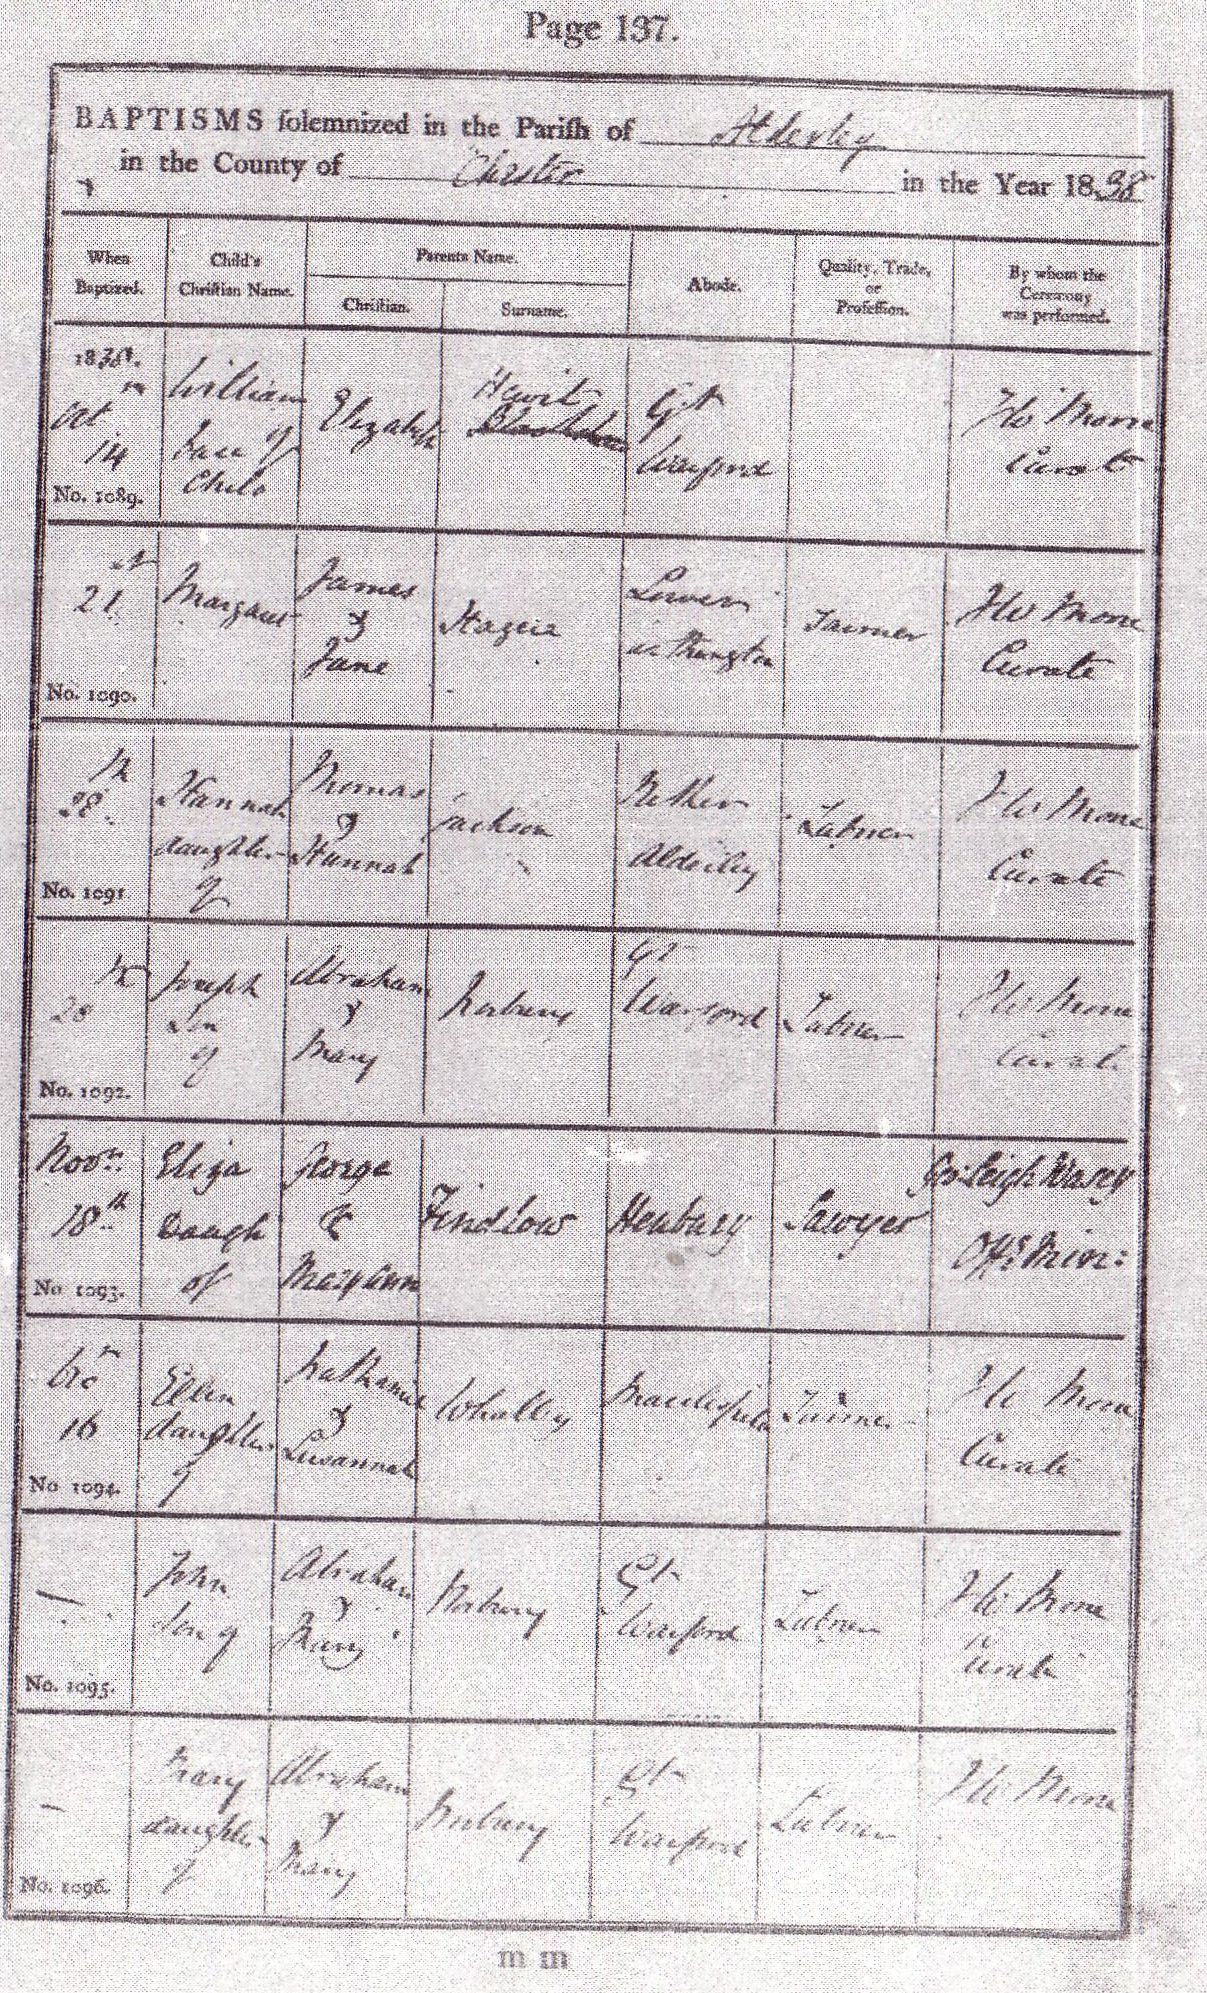 Page 137.
BAPTISMS solemnized in the Parish of Alderley
in the County of Chester in the Year 1838
When Baptized.
Child's Christian Name.
Parents Name.
Christian.
Surname.
Abode.
Quality, Trade, or Profession.
By whom the Ceremony was performed.
1838.
Oct
14
No. 1089.
William
base
Child
Elizabeth
Hewit
Gt
Warford
Curate
21
No. 1090.
Margaret
James
&
Jane
Lower
Withington
Farmer
Curate
th
28
No. 1091.
Hannah
daughter
of
Thomas
&
Hannah
Jackson
Nether
Alderley
Labrer
Curate
th
28
No. 1092.
Joseph
Son
of
Abraham
&
Mary
Norbury
Gt
Warford
Labrer
Curate
Novr.
18th
No 1093.
Eliza
Daugh
of
George
&
Maryann
Findlow
Henbury
Sawyer
Leigh Wasey
Offg Min:
Decr
16
No 1094.
Ellen
daughter
of
Nathaniel
&
Susannah
Whalley
Macclesfield
Farmer
Curate
—
No. 1095.
John
Son of
Abraham
&
Mary
Norbury
Gt
Warford
Labrer
Curate
—
No. 1096.
Mary
daughter
of
Abraham
&
Mary
Norbury
Gt
Warford
Labrer
m m